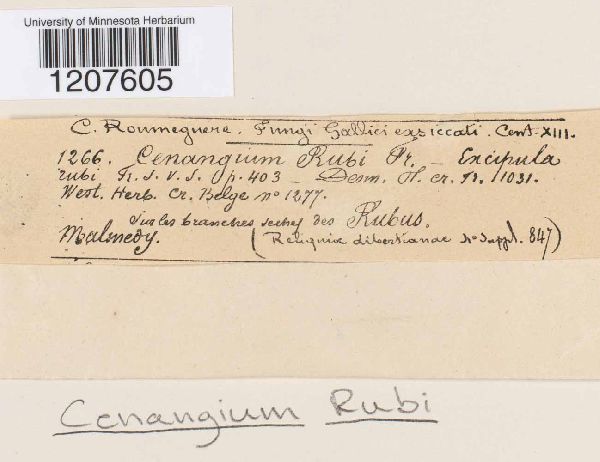 University of Minnesota Herbarium
1207605
C. Roumeguere. Fungi Gallici exsiccati. Cent. XIII.
1266. Cenangium Rubi Fr. — Excipula
rubi Fr. S. V. S. p. 403 — Desm. Pl. cr. Fr. 1031.
West. Herb. Cr. Belge no 1277.
Sur les branches seches des Rubus.
Malmedy. (Reliquiae libertianae No Suppl. 847)
Cenangium Rubi